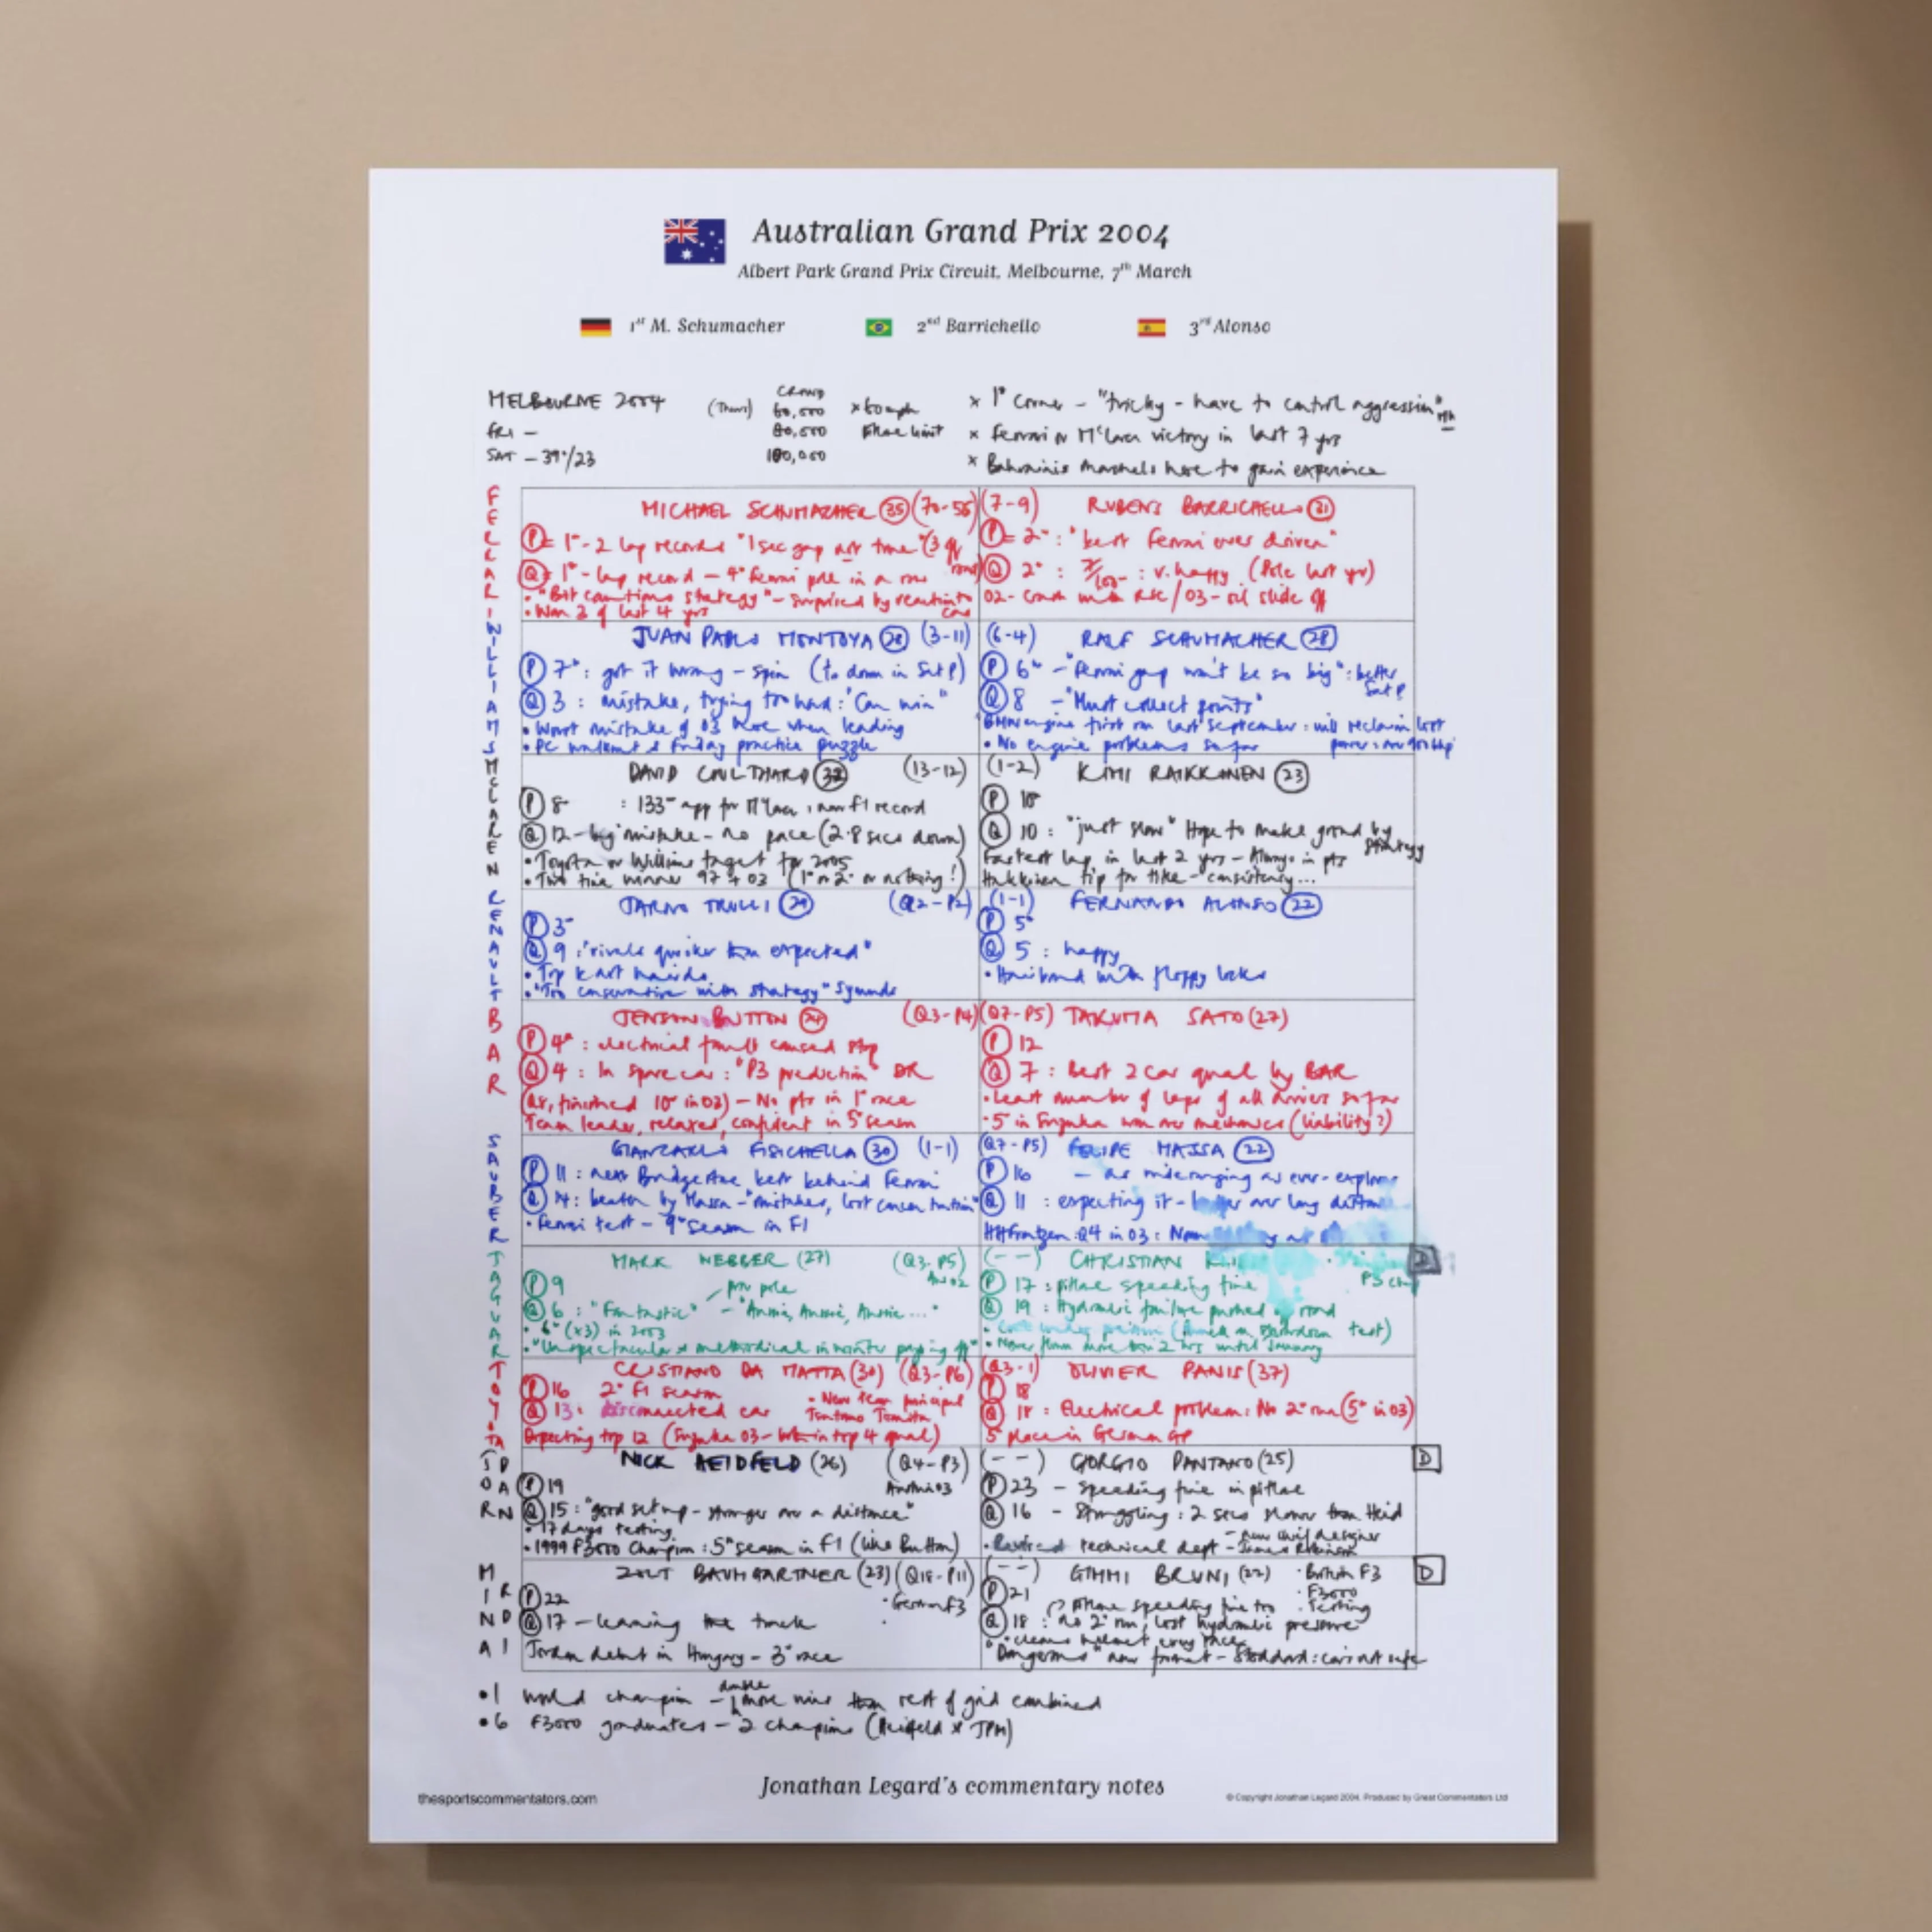 Australian Grand Prix 2004
Albert Park Grand Prix Circuit, Melbourne, 7th March
1st M. Schumacher 2nd Barrichello 3rd Alonso
MELBOURNE 2004 (Thurs) CROWD 60,000 x 60mph
FRI - 80,000 Pitlane limit
SAT - 39°/23 100,000
x 1st Corner - "tricky - have to control aggression"
x Ferrari or McLaren victory in last 7 yrs
x Bahrainis marshals here to gain experience
FERRARI
MICHAEL SCHUMACHER (35) (70-55)
(P) = 1st - 2 lap records "1 sec gap not true"
(Q) = 1st - lap record - 4th Ferrari pole in a row
• "Bit cautious strategy" - surprised by reaction to car
• Won 3 of last 4 yrs
(7-9) RUBENS BARRICHELLO (31)
(P) = 2nd : "best Ferrari ever driven"
(Q) 2nd : : v. happy (Pole last yr)
02 - crash with RSC / 03 - oil slide off
WILLIAMS
JUAN PABLO MONTOYA (28) (3-11)
(P) 7th : got it wrong - spin (to down in Sat P)
(Q) 3 : mistake, trying too hard : "Can win"
• Worst mistake of 03 here when leading
• PC walkout & Friday practice puzzle
(6-4) RALF SCHUMACHER (28)
(P) 6th - "Ferrari gap won't be so big" : better Sat P
(Q) 8 - "Must collect points"
BMW engine first run last September : will reclaim lost
• No engine problems so far power : over 900 bhp
MCLAREN
DAVID COULTHARD (32) (13-12)
(P) 8 : 133rd app for McLaren : new F1 record
(Q) 12 - big mistake - no pace (2.8 secs down)
• Toyota or Williams target for 2005
• Two time winner 97 + 03 (1st or 2nd or nothing!)
(1-2) KIMI RAIKKONEN (23)
(P) 10
(Q) 10 : "just slow" Hope to make ground by strategy
Fastest lap in last 2 yrs - Always in pts
Hakkinen tip for title - consistency...
RENAULT
JARNO TRULLI (29) (Q2-P2)
(P) 3rd
(Q) 9 : "rivals quicker than expected"
• Top kart hairdo
• "Too conservative with strategy" Symonds
(1-1) FERNANDO ALONSO (22)
(P) 5th
(Q) 5 : happy
• Hairband with floppy locks
BAR
JENSON BUTTON (24) (Q3-P4)
(P) 4th : electrical fault caused stop
(Q) 4 : In spare car : "P3 prediction" DR
(Q8, finished 10th in 03) - No pts in 1st race
Team leader, relaxed, confident in 5th season
(Q7-P5) TAKUMA SATO (27)
(P) 12
(Q) 7 : Best 2 car qual by BAR
• Least number of laps of all drivers so far
• 5 in Suzuka won over mechanics (liability?)
SAUBER
GIANCARLO FISICHELLA (30) (1-1)
(P) 11 : next Bridgestone best behind Ferrari
(Q) 14 : beaten by Massa - "mistakes, lost concentration"
• Ferrari test - 9th season in F1
(Q7-P5) FELIPE MASSA (22)
(P) 16 - as wideranging as ever - explore
(Q) 11 : expecting it - over long distance
HHFrentzen : Q4 in 03 :
JAGUAR
MARK WEBBER (27) (Q3-P5) Aus 02
(P) 9 prov pole
(Q) 6 : "Fantastic" - "Aussie, Aussie, Aussie..."
• 6th (x3) in 2003
• "Unspectacular & methodical in winter paying off"
(--) CHRISTIAN D
(P) 17 : pitlane speeding fine
(Q) 19 : Hydraulic failure pushed road
test)
• Never flown more than 2 hrs until January
TOYOTA
CRISTIANO DA MATTA (30) (Q3-P6)
(P) 16 2nd F1 season • New team principal
(Q) 13 : disconnected car Tsutomo Tomita
Expecting top 12 (Suzuka 03 - both in top 4 qual)
(Q3-1) OLIVIER PANIS (37)
(P) 18
(Q) 18 : Electrical problem : No 2nd run (5th in 03)
5 place in German GP
JORDAN
NICK HEIDFELD (26) (Q4-P3)
(P) 19 Austria 03
(Q) 15 : "good set up - stronger over a distance"
• 17 days testing
• 1999 F3000 Champion : 5th season in F1 (like Button)
(--) GIORGIO PANTANO (25) D
(P) 23 - speeding fine in pitlane
(Q) 16 - Struggling : 2 secs slower than Heid
• Revised technical dept - new chief designer James Robinson
MINARDI
ZSOLT BAUMGARTNER (23) (Q18-P11)
(P) 22 • German F3
(Q) 17 - learning the track
Jordan debut in Hungary - 3rd race
(--) GIMMI BRUNI (22) • British F3 D
(P) 21 • F3000
pitlane speeding fine too • Testing
(Q) 18 : no 2nd run, lost hydraulic pressure
• cleans helmet every race
"Dangerous" new format - Stoddard : cars not safe
• 1 world champion - double more wins than rest of grid combined
• 6 F3000 graduates - 2 champions (Heidfeld & JPM)
Jonathan Legard's commentary notes
thesportscommentators.com
© Copyright Jonathan Legard 2004. Produced by Great Commentators Ltd